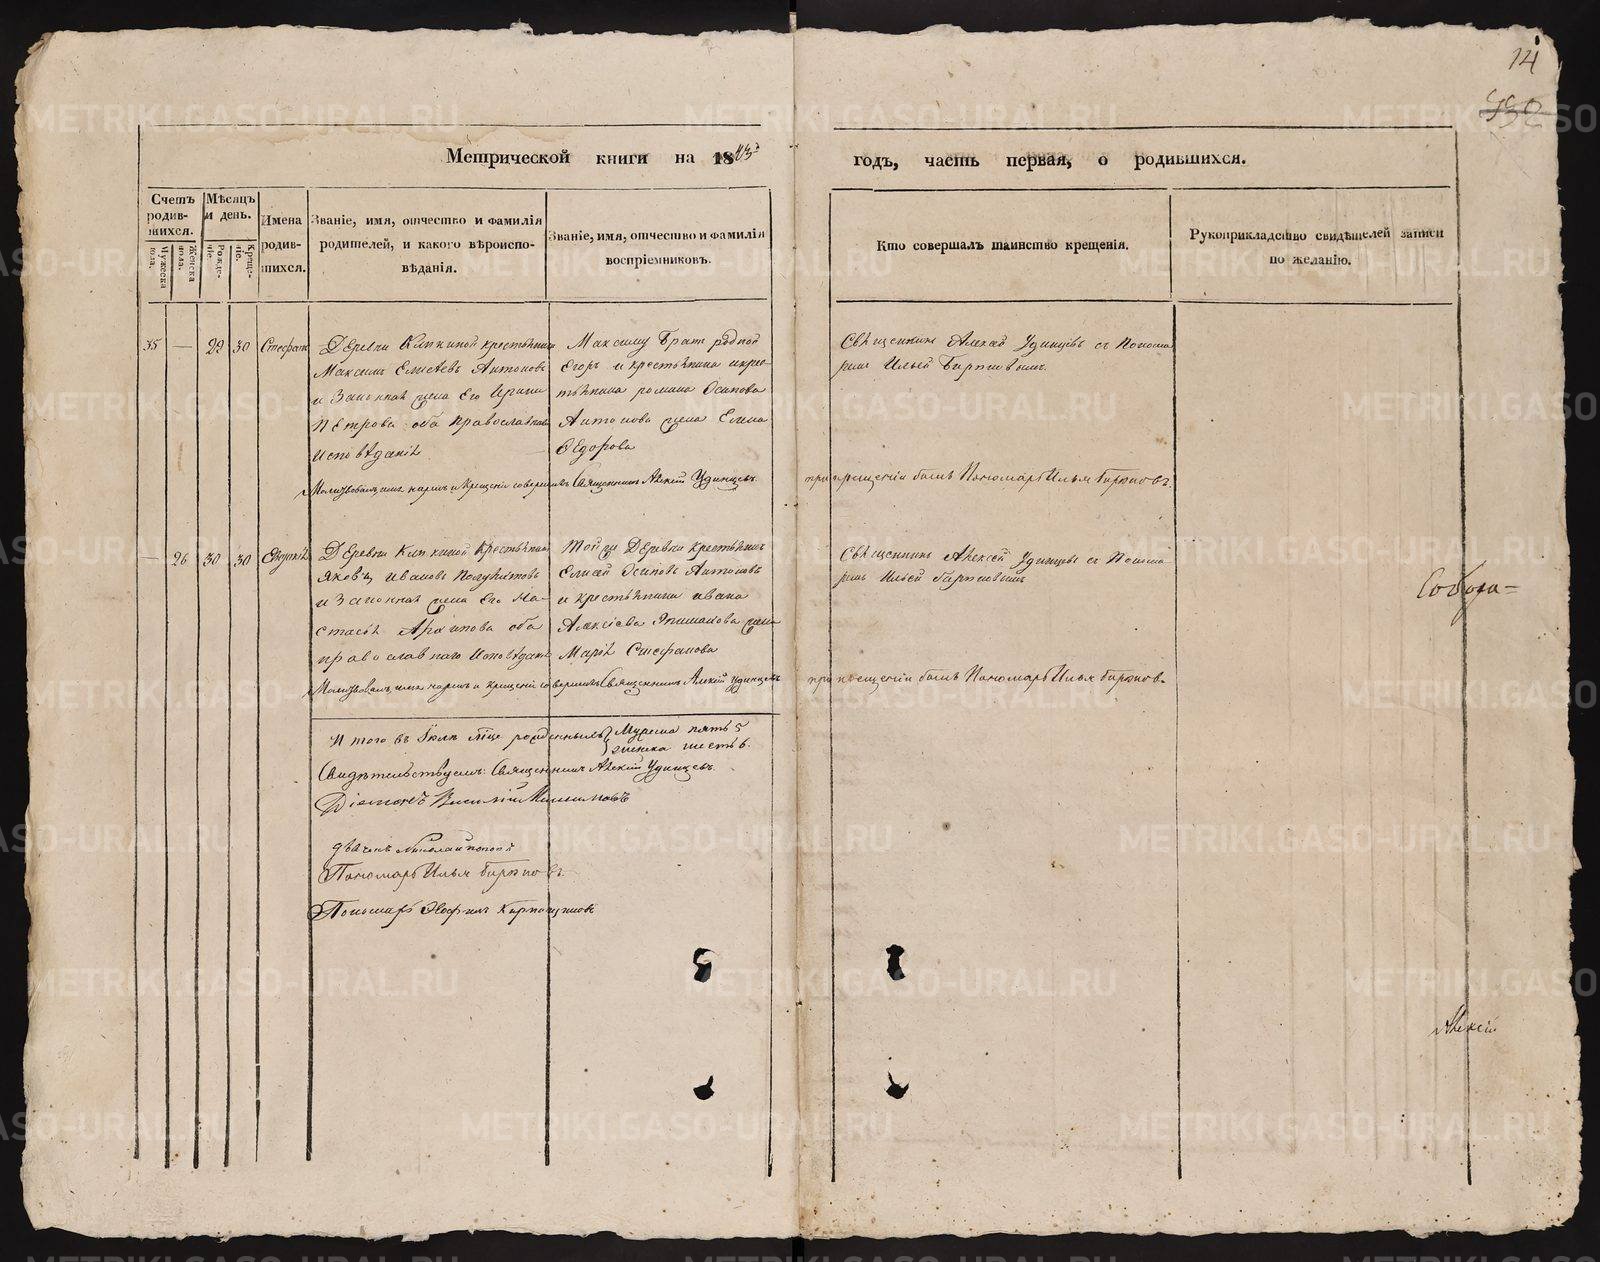 14
432
Метрической книги на 1843й
годъ, часть первая, о родившихся.
Счетъ родив-
шихся.
Мужеска пола.
Женска пола.
Мѣсяцъ и день.
Рожде-
ніе.
Креще-
ніе.
Имена
родив-
шихся.
Званіе, имя, отчество и фамилія
родителей, и какого вѣроиспо-
вѣданія.
Званіе, имя, отчество и фамилія
воспріемниковъ.
Кто совершалъ таинство крещенія.
Рукоприкладство свидѣтелей записи
по желанію.
35 — 29 30 Стефанъ
Деревни крестьянинъ
Максимъ Елисѣевъ Антоновъ
и Законная жена Его Ирина
Петрова оба Православнаго
исповѣданія
Максиму Братъ родной
Егоръ и крестьянина
Романа Осипова
Антонова жена Елена
Ѳедорова
Священникъ Алексѣй Удинцевъ съ Понома
ремъ Ильей
Молитвовалъ, имя нарекъ и Крещеніе совершилъ Священникъ Алексій Удинцевъ.
при крещеніи былъ Пономарь Илья
— 26 30 30 Евдокія
Деревни крестьянинъ
Яковъ Ивановъ
и Законная жена Его На-
стасья Архипова оба
православнаго Исповѣданія
Той же Деревни крестьянинъ
Елисѣй Осиповъ Антоновъ
и крестьянина Ивана
Алексѣева жена
Марія Стефанова
Священникъ Алексѣй Удинцевъ съ Понома
ремъ Ильей
Собора=
Молитвовалъ, имя нарекъ и крещеніе совершилъ Священникъ Алексій Удинцевъ
при крещеніи былъ Пономарь Илья
Итого въ Іюлѣ мѣсяце рожденныхъ Мужеска пять 5
женска шесть 6.
Свидѣтельствуемъ: Священникъ Алексій Удинцевъ.
Діаконъ Василій
дьячекъ Николай Поповъ
Пономарь Илья
Пономарь
Алексій